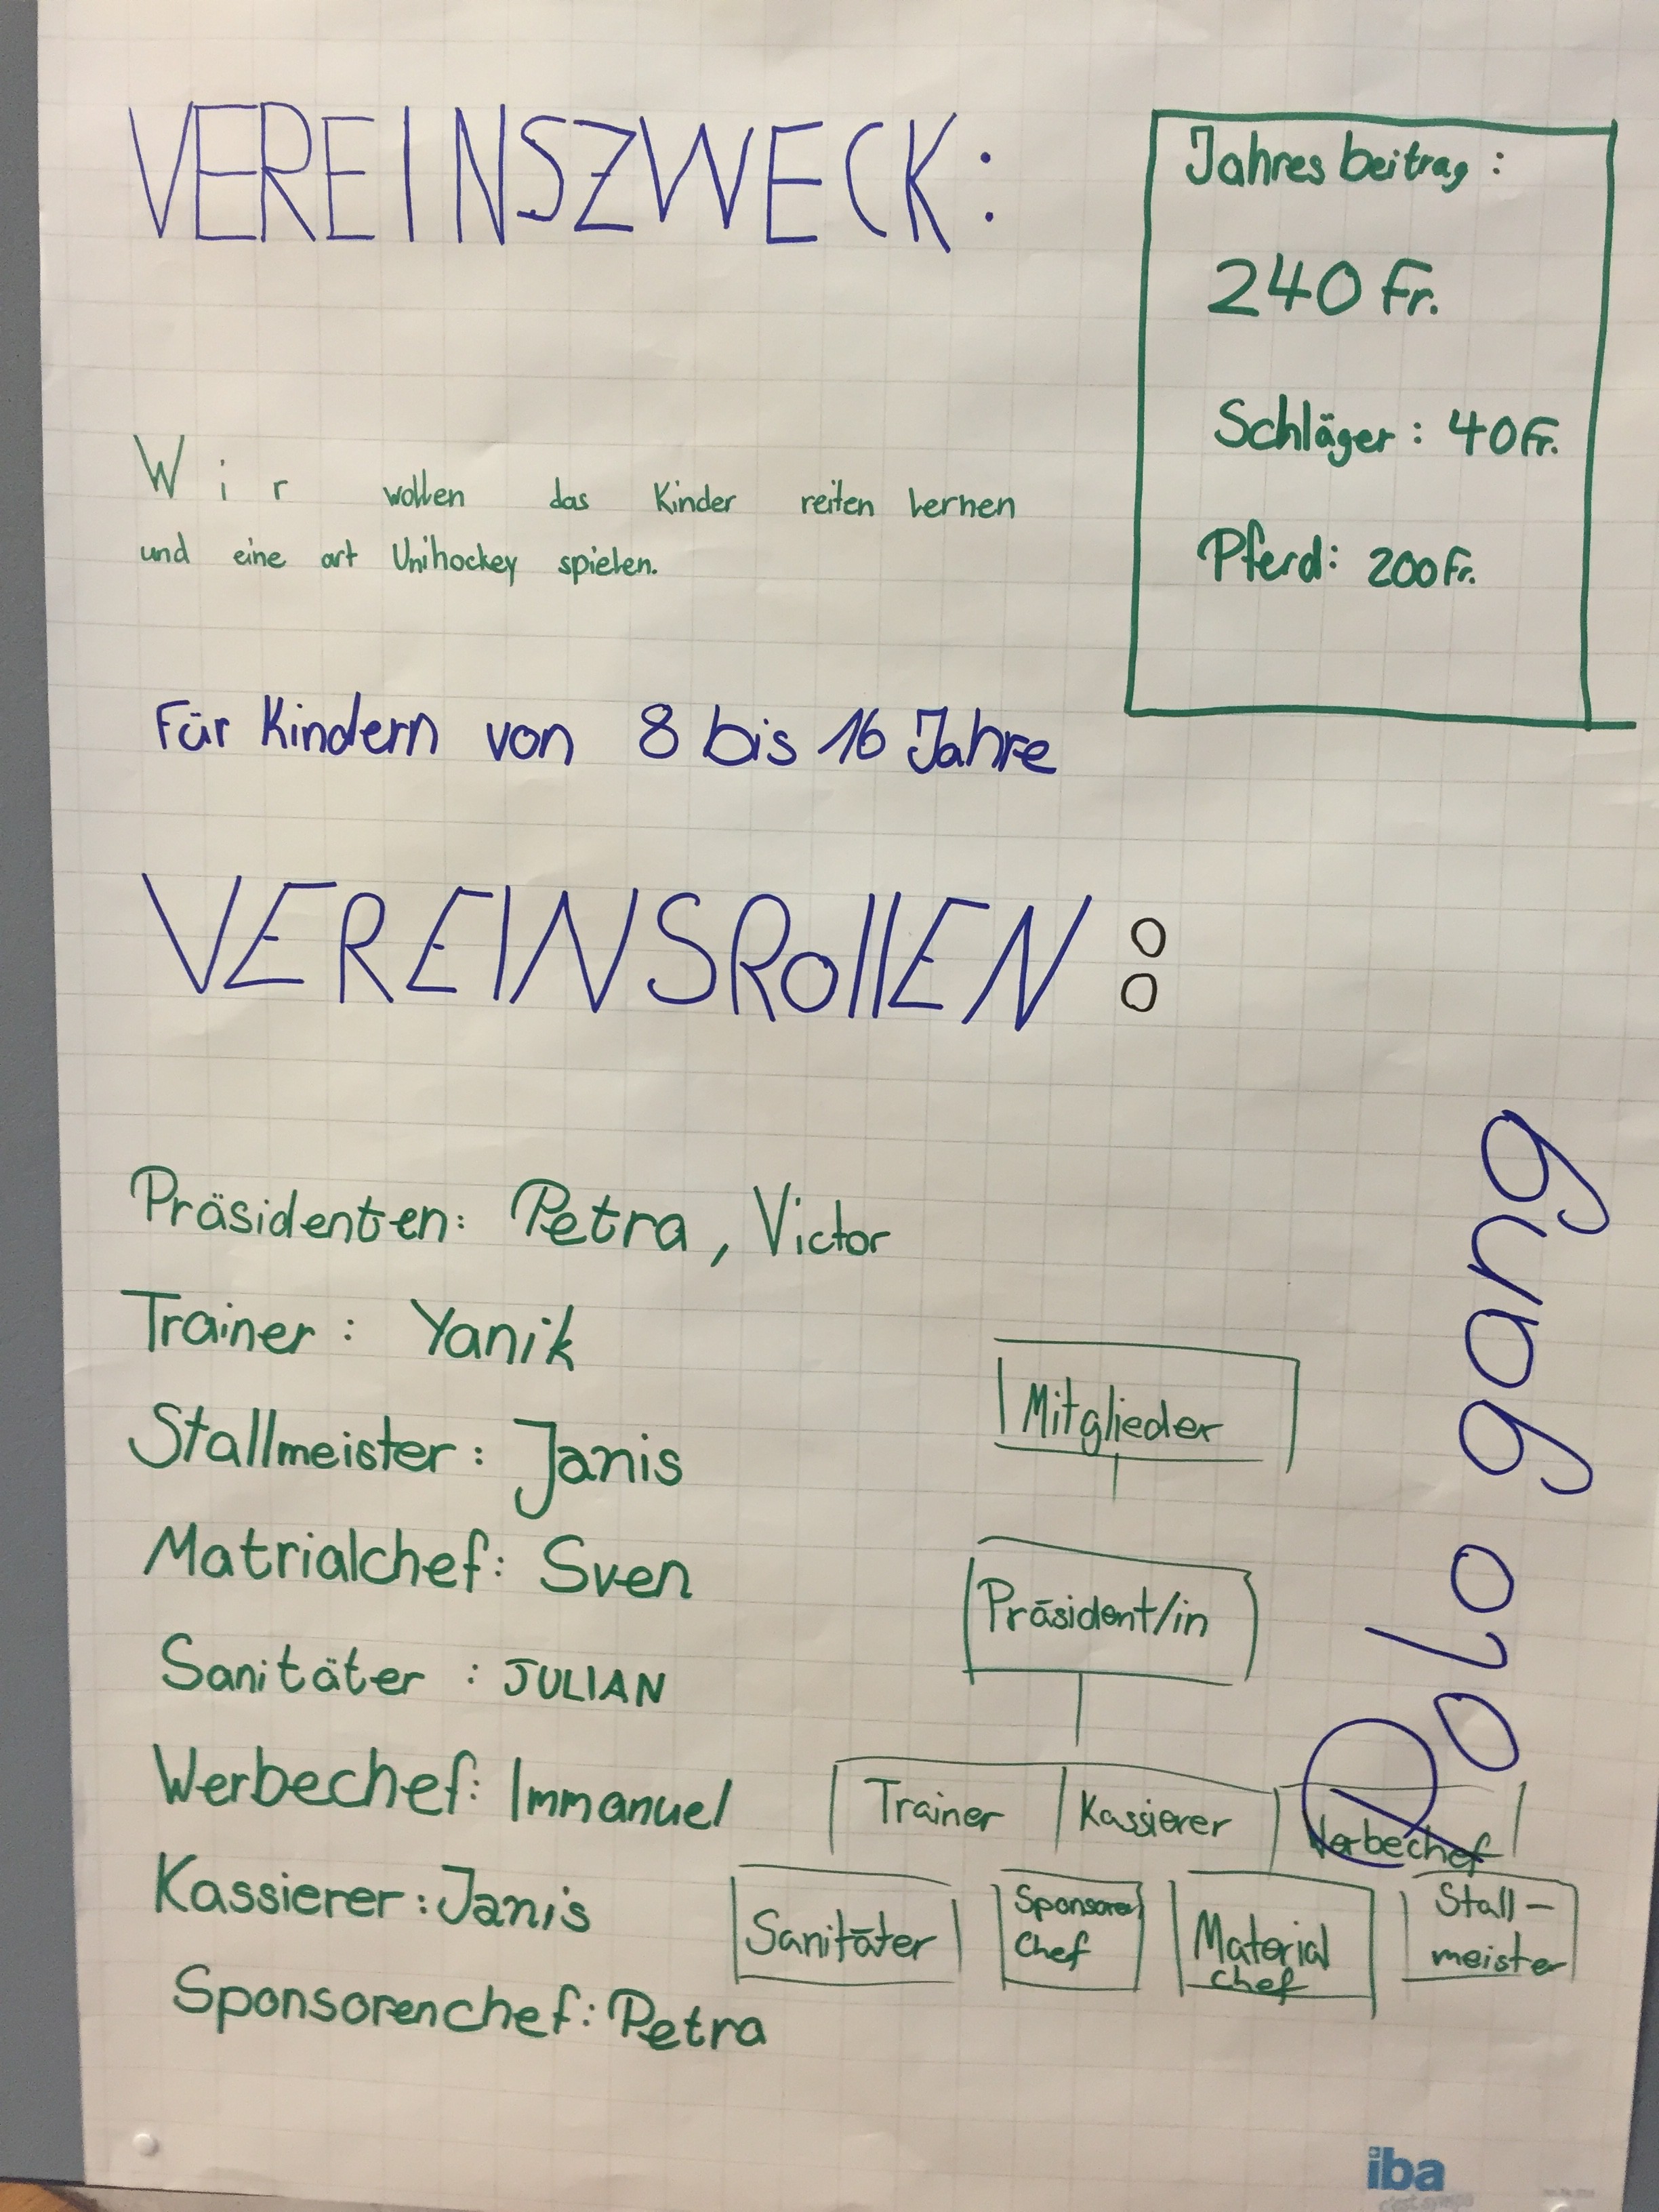 VEREINSZWECK:
Jahresbeitrag :
240 Fr.
Schläger : 40 Fr.
Pferd: 200 Fr.
Wir wollen das Kinder reiten lernen
und eine art Unihockey spielen.
Für Kindern von 8 bis 16 Jahre
VEREINSROllEN :
Präsidenten: Petra, Victor
Trainer : Yanik
Stallmeister : Janis
Matrialchef: Sven
Sanitäter : JULIAN
Werbechef: Immanuel
Kassierer : Janis
Sponsorenchef: Petra
Mitglieder
Präsident/in
Trainer
Kassierer
Werbechef
Sanitäter
Sponsoren
Chef
Material
chef
Stall-
meister
Polo gang
iba